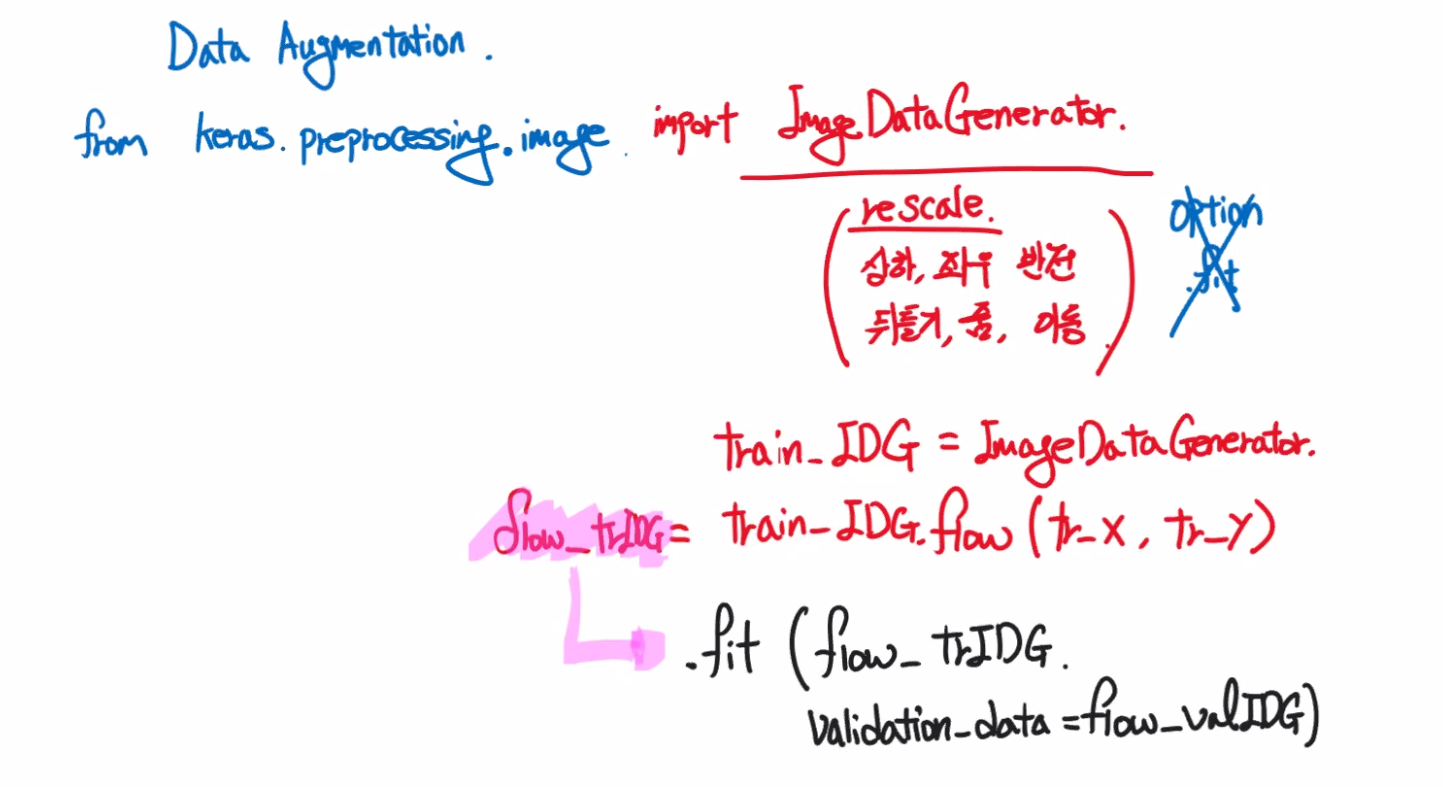 Data Augmentation.
from keras.preprocessing.image import ImageDataGenerator.
(rescale.
상하, 좌우 반전
뒤틀기, 줌, 이동.)
option
.fit
train_IDG = ImageDataGenerator.
flow_trIDG = train_IDG.flow (tr_X, tr_Y)
.fit (flow_trIDG.
validation_data = flow_valIDG)